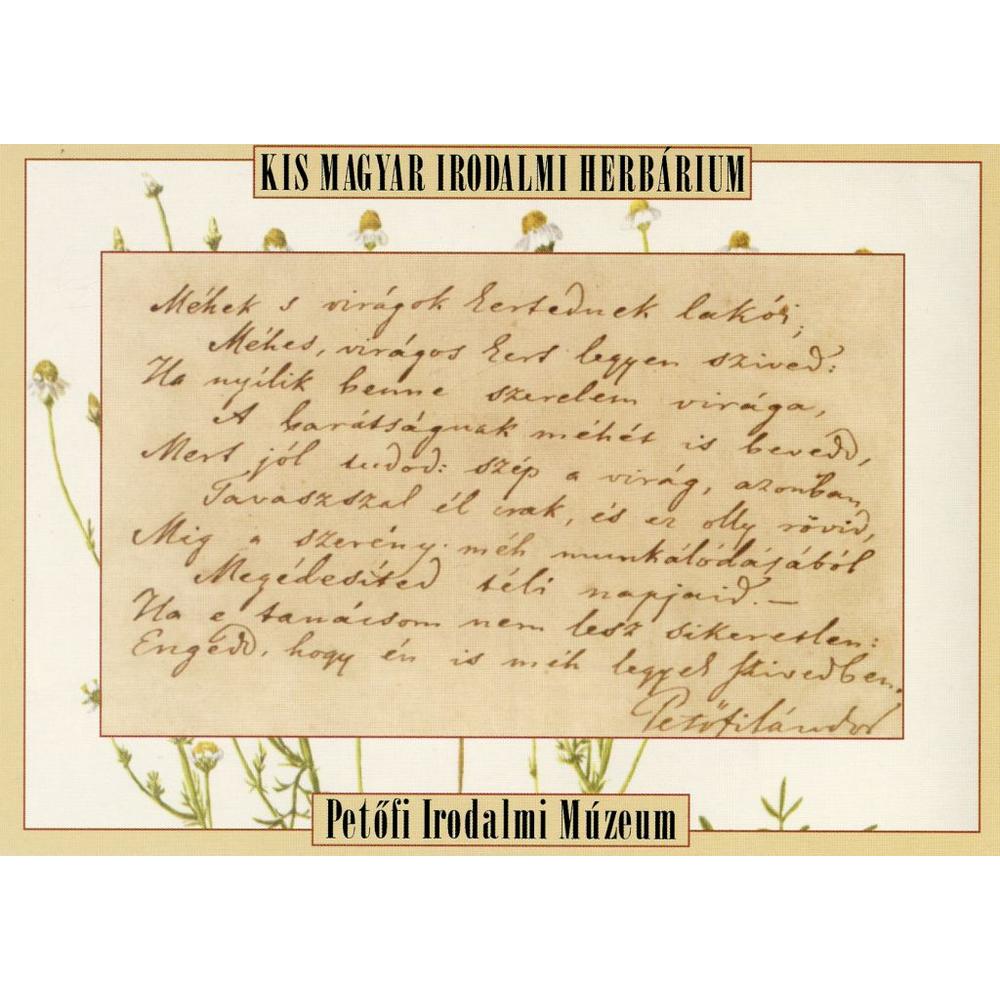 KIS MAGYAR IRODALMI HERBÁRIUM
Méhek s virágok kertednek lakói;
Méhes, virágos kert legyen szived:
Ha nyílik benne szerelem virága,
A barátságnak méhét is bevedd,
Mert jól tudod: szép a virág, azonban
Tavaszszal él csak, és ez olly rövid,
Mig a szerény méh munkálódásából
Megédesíted téli napjaid. —
Ha e tanácsom nem lesz sikeretlen:
Engedd, hogy én is méh legyek szivedben.
Petőfi Sándor
Petőfi Irodalmi Múzeum